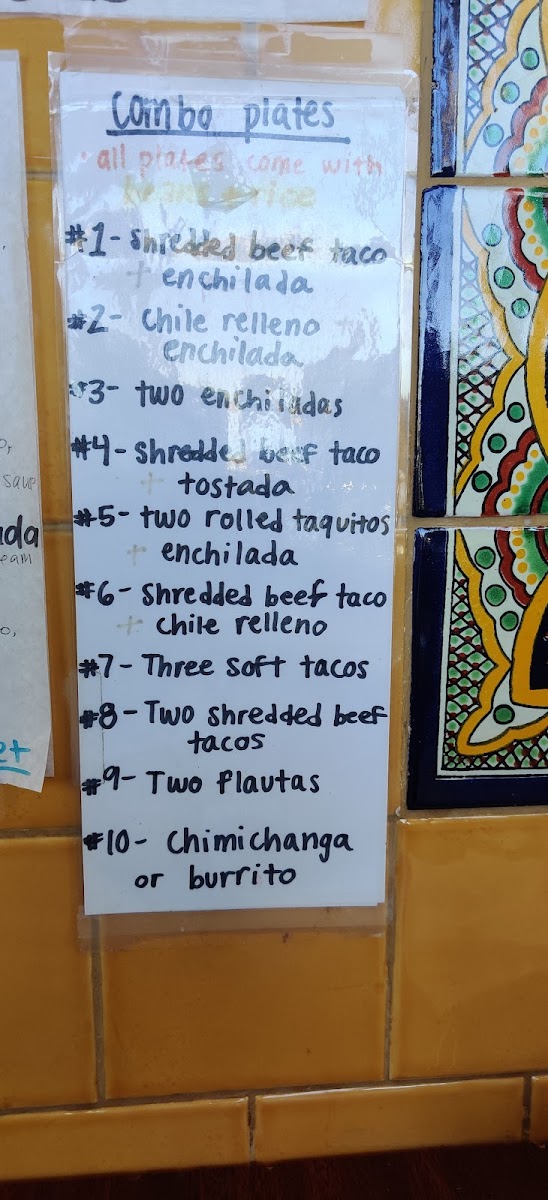 Combo plates
• all plates come with
beans + rice
#1- Shredded beef taco
+ enchilada
#2- Chile relleno +
enchilada
#3- two enchiladas
#4- Shredded beef taco
+ tostada
#5- two rolled taquitos
+ enchilada
#6- Shredded beef taco
+ chile relleno
#7- Three soft tacos
#8- Two shredded beef
tacos
#9- Two flautas
#10- Chimichanga
or burrito
soup